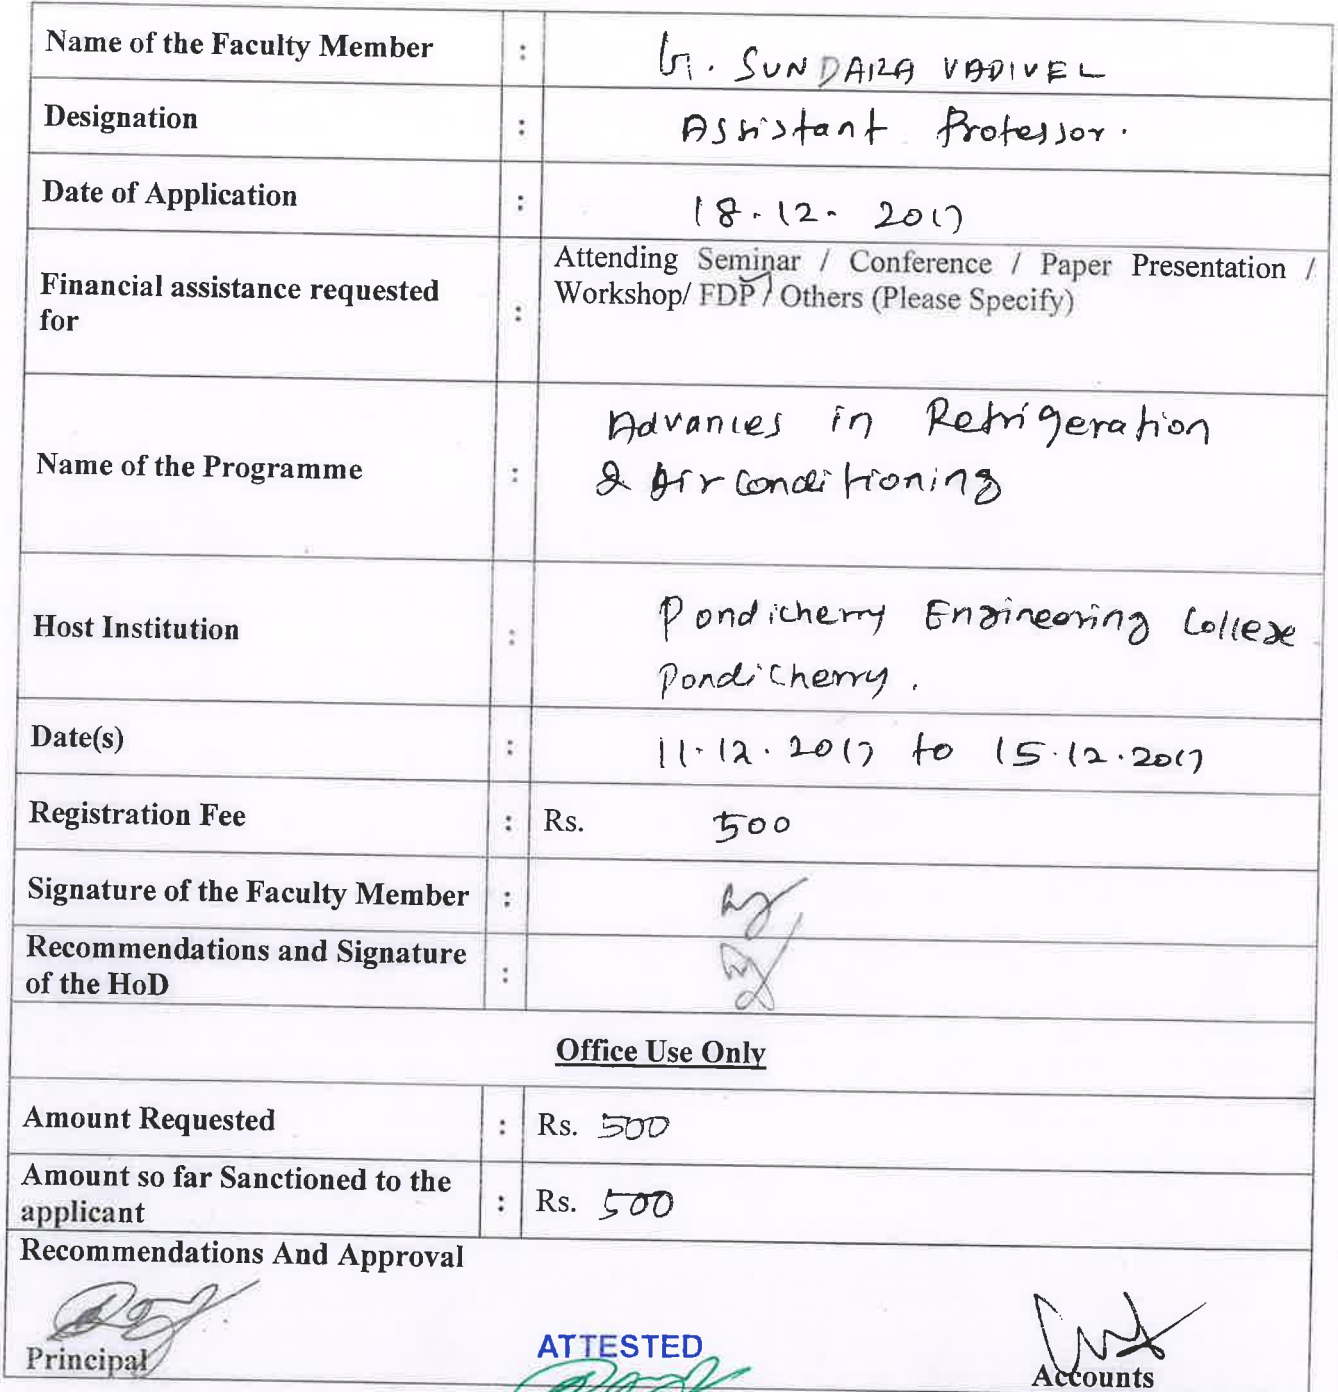 Name of the Faculty Member : G. SUNDARA VADIVEL
Designation : Assistant Professor.
Date of Application : 18.12.2017
Financial assistance requested for : Attending Seminar / Conference / Paper Presentation /
Workshop/ FDP / Others (Please Specify)
Name of the Programme : Advances in Refrigeration
& Air Conditioning
Host Institution : Pondicherry Engineering College
Pondicherry.
Date(s) : 11.12.2017 to 15.12.2017
Registration Fee : Rs. 500
Signature of the Faculty Member :
Recommendations and Signature
of the HoD :
Office Use Only
Amount Requested : Rs. 500
Amount so far Sanctioned to the
applicant : Rs. 500
Recommendations And Approval
ATTESTED
Principal
Accounts